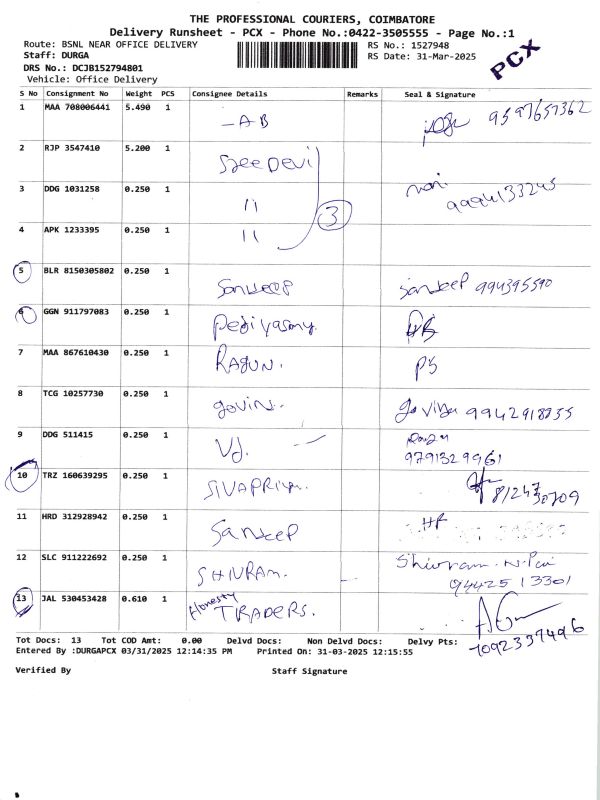 THE PROFESSIONAL COURIERS, COIMBATORE
Delivery Runsheet - PCX - Phone No.:0422-3505555 - Page No.:1
Route: BSNL NEAR OFFICE DELIVERY RS No.: 1527948
Staff: DURGA RS Date: 31-Mar-2025
PCX
DRS No.: DCJB152794801
Vehicle: Office Delivery
S No Consignment No Weight PCS Consignee Details Remarks Seal & Signature
1 MAA 708006441 5.490 1 - AB 9597657362
2 RJP 3547410 5.200 1 Sree Devi
3 DDG 1031258 0.250 1 11 9994133245
3
4 APK 1233395 0.250 1 11
5 BLR 8150305802 0.250 1 Sandeep Sandeep 994395590
6 GGN 911797083 0.250 1
7 MAA 867610430 0.250 1 RAGUN. PS
8 TCG 10257730 0.250 1 govin
9 DDG 511415 0.250 1 VJ. 9791329961
10 TRZ 160639295 0.250 1 SIVAPRIYA.
11 HRD 312928942 0.250 1 Sandeep
12 SLC 911222692 0.250 1 SHIVRAM. Shivram
94425 13301
13 JAL 530453428 0.610 1 Honesty TRADERS.
7092337496
Tot Docs: 13 Tot COD Amt: 0.00 Delvd Docs: Non Delvd Docs: Delvy Pts:
Entered By :DURGAPCX 03/31/2025 12:14:35 PM Printed On: 31-03-2025 12:15:55
Verified By Staff Signature